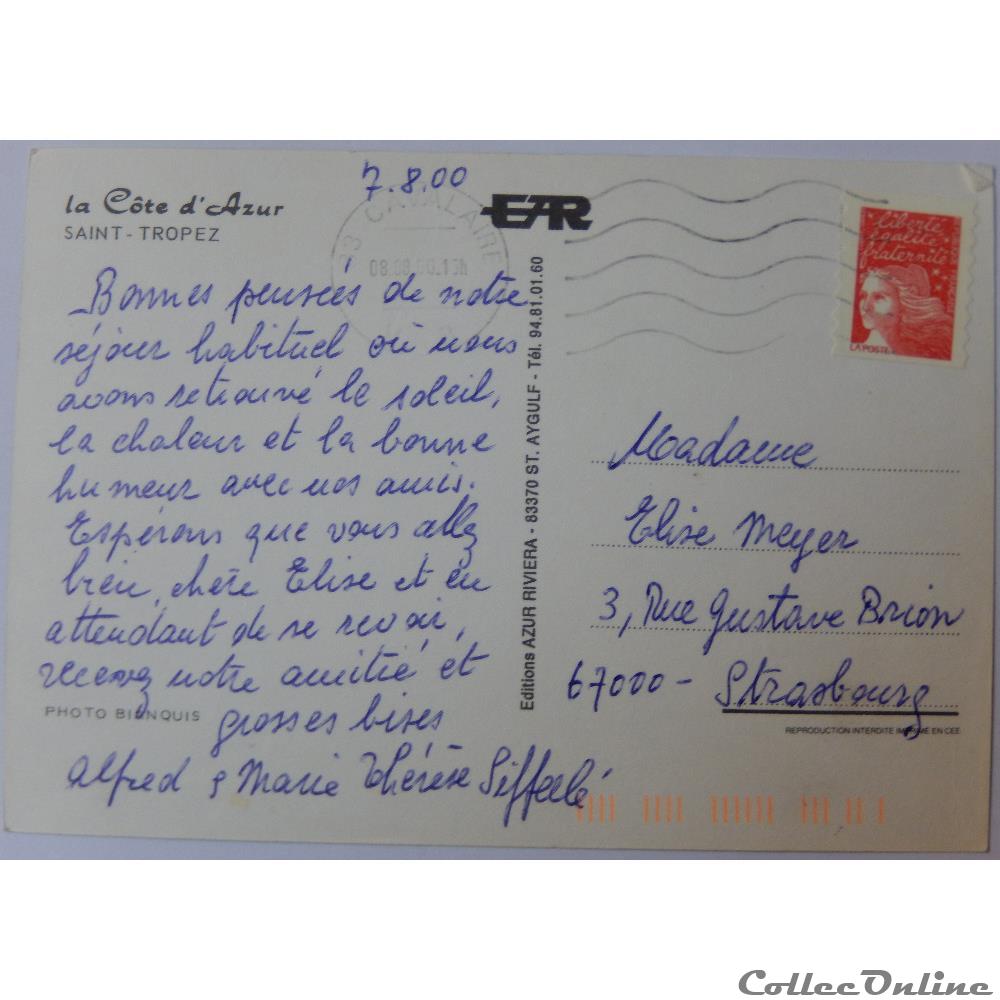 7.8.00
la Côte d'Azur
SAINT-TROPEZ
EAR
83 CAVALAIRE
08.08.00.15h
liberté
égalité
fraternité
LA POSTE
Bonnes pensées de notre
séjour habituel où nous
avons retrouvé le soleil,
la chaleur et la bonne
humeur avec nos amis.
Espérons que vous allez
bien, chère Elise et en
attendant de se revoir,
recevez notre amitié et
grosses bises
Alfred & Marie Thérèse
PHOTO BIANQUIS
Editions AZUR RIVIERA - 83370 ST. AYGULF - Tél. 94.81.01.60
Madame
Elise Meyer
3, Rue Gustave Brion
67000 - Strasbourg
REPRODUCTION INTERDITE IMPRIMÉ EN CEE
CollecOnline